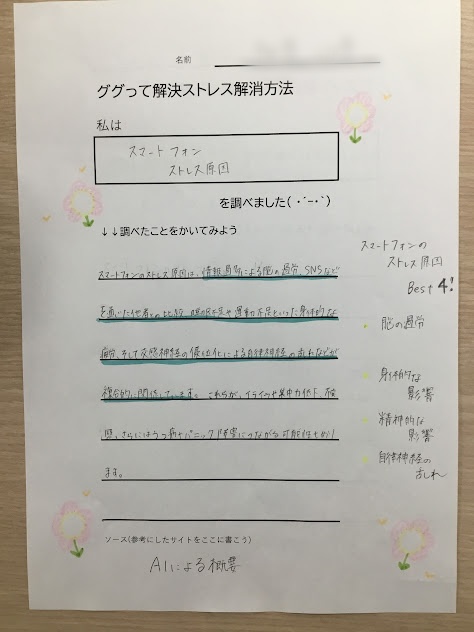 名前
ググって解決ストレス解消方法
私は
スマートフォン
ストレス原因
を調べました(・´ー・`)
↓↓調べたことをかいてみよう
スマートフォンのストレス原因は、情報過多による脳の過労、SNSなど
を通いた他者との比較、睡眠不足や運動不足といった身体的な
疲労、そして交感神経の優位化による自律神経の乱れなどが
複合的に関係しています。これらが、イライラや集中力低下、不安
感、さらにはうつ病やパニック障害につながる可能性もあり
ます。
ソース(参考にしたサイトをここに書こう)
AIによる概要
スマートフォンの
ストレス原因
Best 4!
・脳の過労
・身体的な
影響
・精神的な
影響
・自律神経の
乱れ